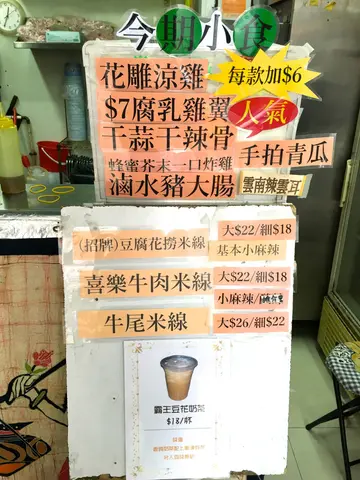 今期小食
花雕涼雞
每款加$6
$7腐乳雞翼
人氣
干蒜干辣骨
手拍青瓜
蜂蜜芥末一口炸雞
滷水豬大腸
雲南辣雲耳
(招牌)豆腐花撈米線
大$22/細$18
基本小麻辣
喜樂牛肉米線
大$22/細$18
小麻辣/
牛尾米線
大$26/細$22
霸王豆花奶茶
$18/杯